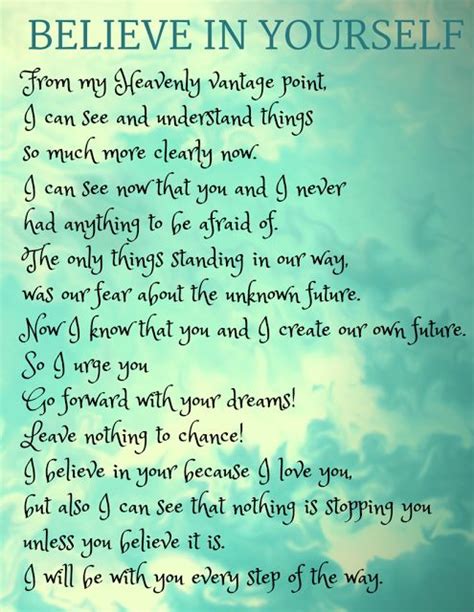 BELIEVE IN YOURSELF
From my Heavenly vantage point,
I can see and understand things
so much more clearly now.
I can see now that you and I never
had anything to be afraid of.
The only things standing in our way,
was our fear about the unknown future.
Now I know that you and I create our own future.
So I urge you
Go forward with your dreams!
Leave nothing to chance!
I believe in your because I love you,
but also I can see that nothing is stopping you
unless you believe it is.
I will be with you every step of the way.